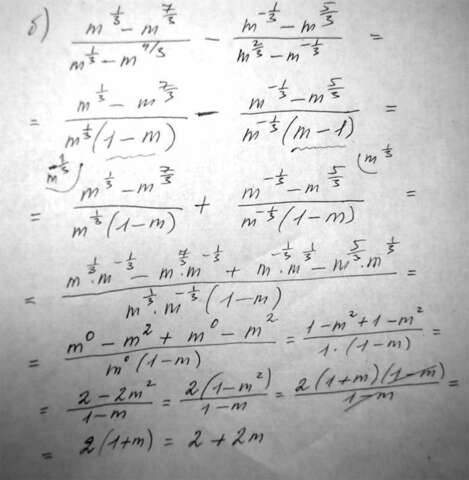 б) (m^(1/3) − m^(7/3))/(m^(1/3) − m^(4/3)) − (m^(−1/3) − m^(5/3))/(m^(2/3) − m^(−1/3)) =
= (m^(1/3) − m^(7/3))/(m^(1/3)(1−m)) − (m^(−1/3) − m^(5/3))/(m^(−1/3)(m−1)) =
m^(−1/3) m^(1/3)
= (m^(1/3) − m^(7/3))/(m^(1/3)(1−m)) + (m^(−1/3) − m^(5/3))/(m^(−1/3)(1−m)) =
= (m^(1/3)·m^(−1/3) − m^(7/3)·m^(−1/3) + m^(−1/3)·m^(1/3) − m^(5/3)·m^(1/3))/(m^(1/3)·m^(−1/3)(1−m)) =
= (m^0 − m^2 + m^0 − m^2)/(m^0(1−m)) = (1−m^2+1−m^2)/(1·(1−m)) =
= (2−2m^2)/(1−m) = (2(1−m^2))/(1−m) = (2(1+m)(1−m))/(1−m) =
= 2(1+m) = 2+2m